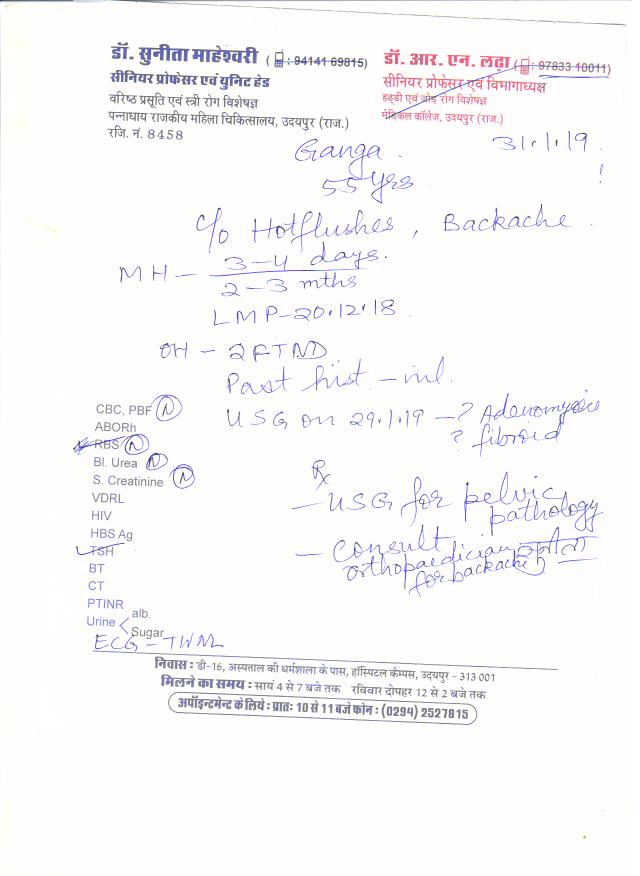 डॉ. सुनीता माहेश्वरी ( : 94141 69815)
सीनियर प्रोफेसर एवं यूनिट हेड
वरिष्ठ प्रसूति एवं स्त्री रोग विशेषज्ञ
पन्नाधाय राजकीय महिला चिकित्सालय, उदयपुर (राज.)
रजि. नं. 8458
डॉ. आर. एन. लढ़ा ( : 97833 10011)
सीनियर प्रोफेसर एवं विभागाध्यक्ष
हड्डी एवं जोड़ रोग विशेषज्ञ
मेडिकल कॉलेज, उदयपुर (राज.)
31.1.19
Ganga
55 yrs
c/o Hotflushes, Backache
MH - 3-4 days.
2-3 mths
LMP-20.12.18
OH - 2FTND
Past hist. - nil.
USG on 29.1.19 - ? Adenomyosis
? fibroid
CBC, PBF N
ABORh
RBS N
Bl. Urea N
S. Creatinine N
VDRL
HIV
HBS Ag
TSH
BT
CT
PTINR
Urine < alb.
Sugar
ECG - TWNL
Rx
- USG for pelvic
pathology
- Consult
orthopaedician सुनीता
for backache
निवास : डी-16, अस्पताल की धर्मशाला के पास, हॉस्पिटल कैम्पस, उदयपुर - 313 001
मिलने का समय : सायं 4 से 7 बजे तक रविवार दोपहर 12 से 2 बजे तक
अपॉइन्टमेन्ट के लिये : प्रातः 10 से 11 बजे फोन : (0294) 2527815